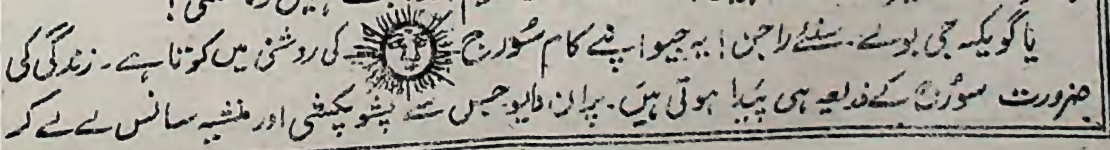 یاگویکہ جی بولے۔ سنئے راجن! یہ جیو اپنے کام سُورج کی روشنی میں کرتا ہے۔ زندگی کی
ضرورت سورج کے ذریعہ ہی پیدا ہوتی ہیں۔ پران وایو جس سے پشو پکشی اور منشیہ سانس لے لے کر